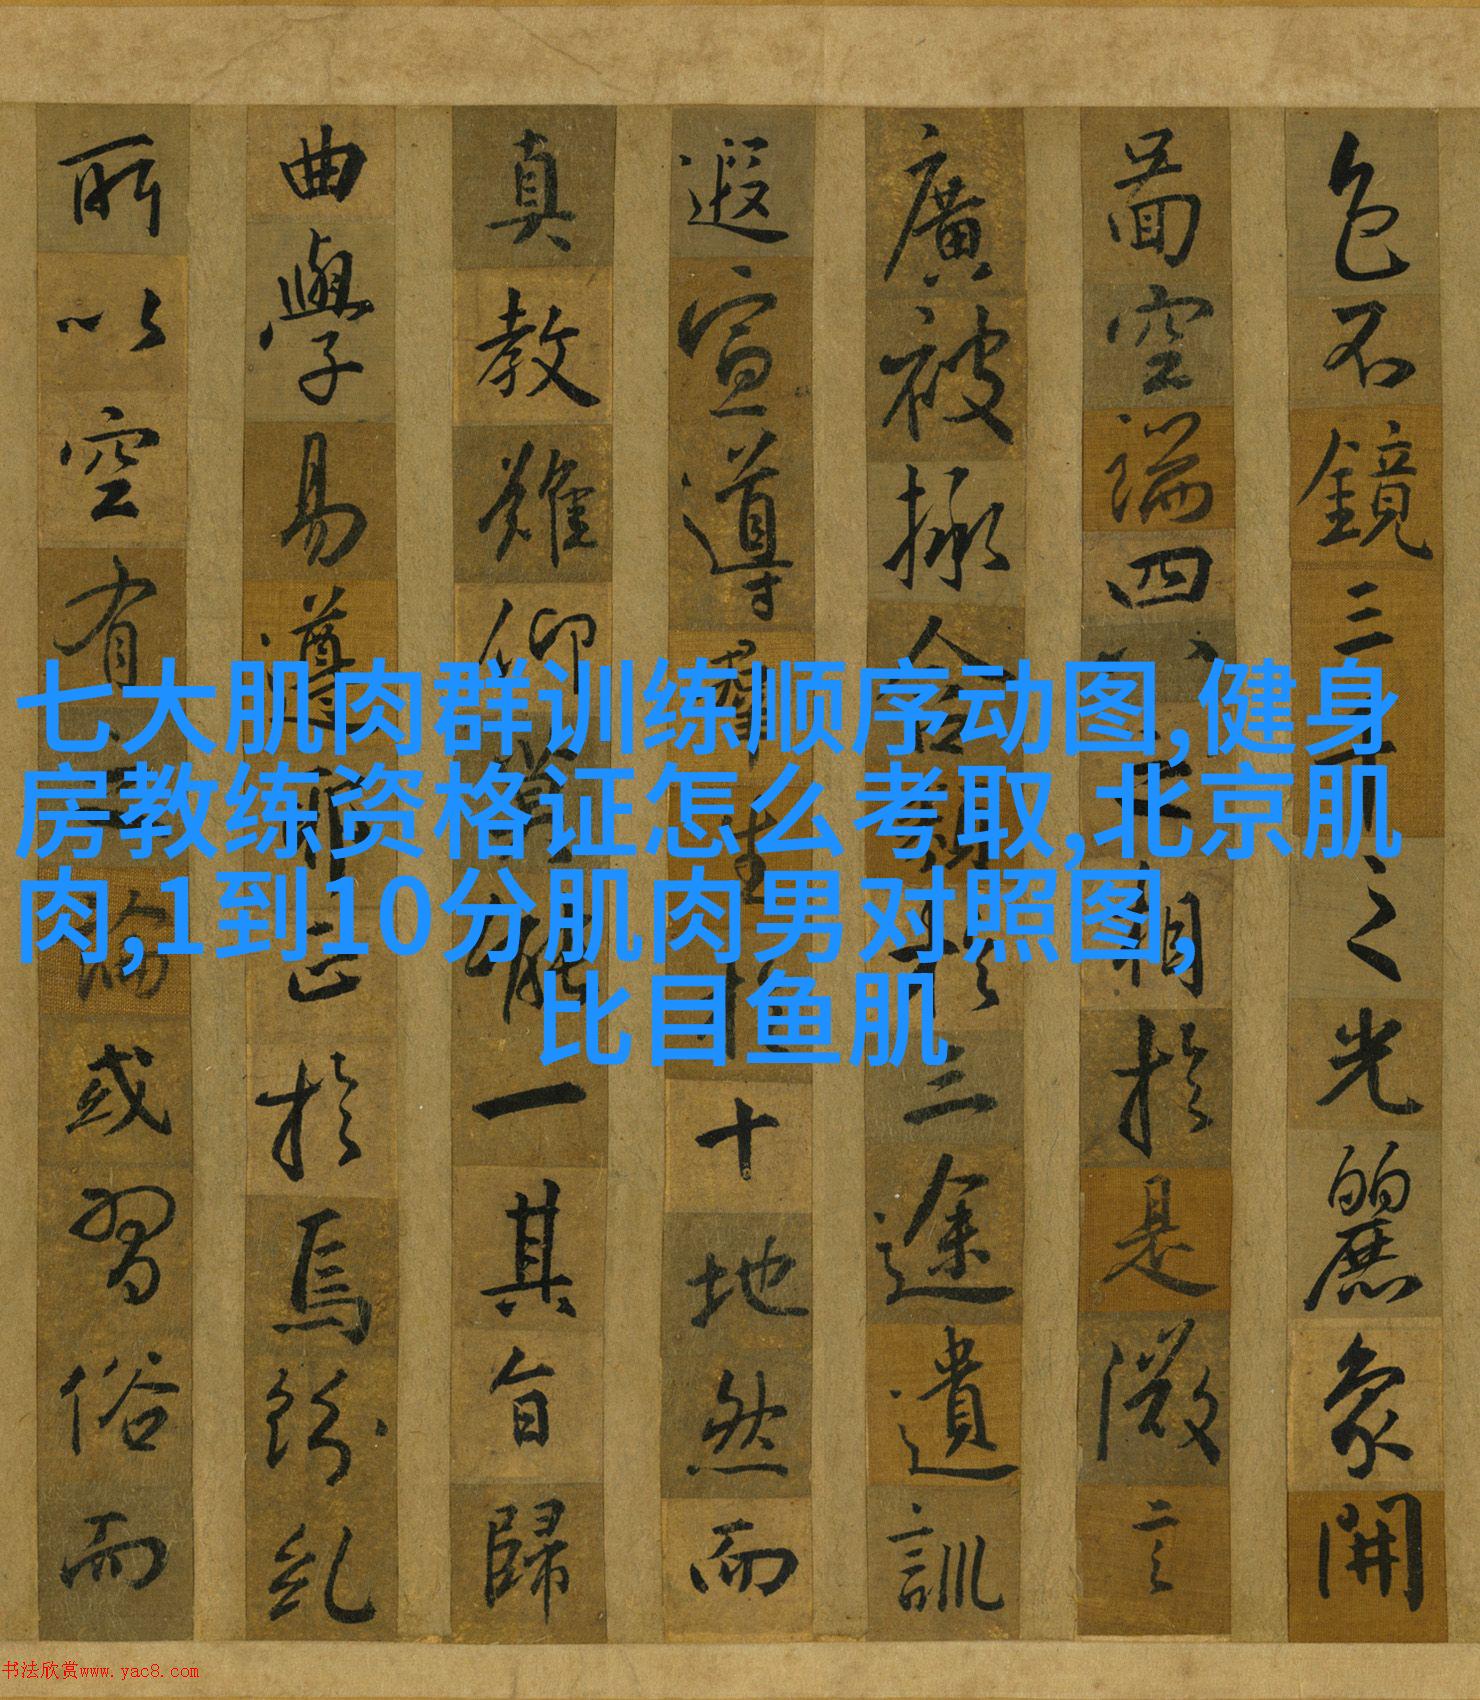 色不鏡三千之光麗象開
啚空端四八之相於是微言
廣被拯含類於三途遺訓
遐宣導羣生於十地然而
真教難仰莫能一其旨歸
曲學易遵邪正於焉紛糺
所以空有之論或習俗而
七大肌肉群训练顺序动图,健身
房教练资格证怎么考取,北京肌
肉,1到10分肌肉男对照图,
比目鱼肌
书法欣赏www.yac8.com